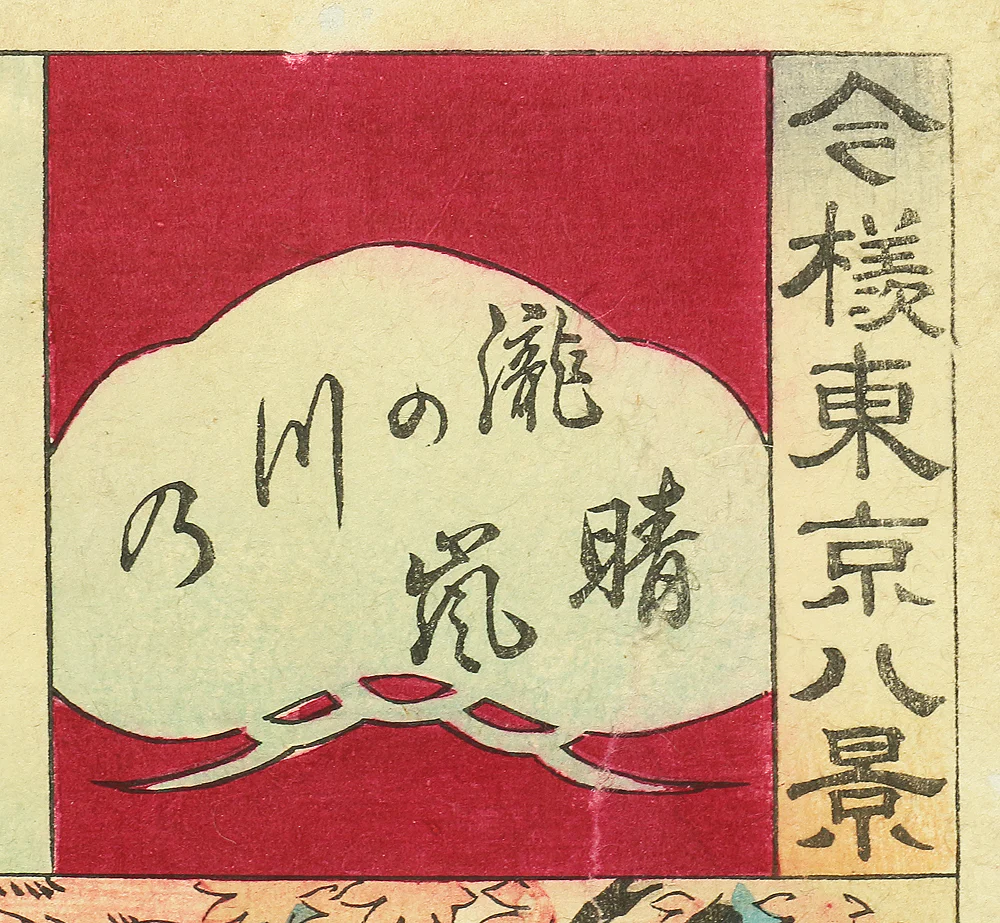 今樣東京八景
瀧の川乃
晴嵐